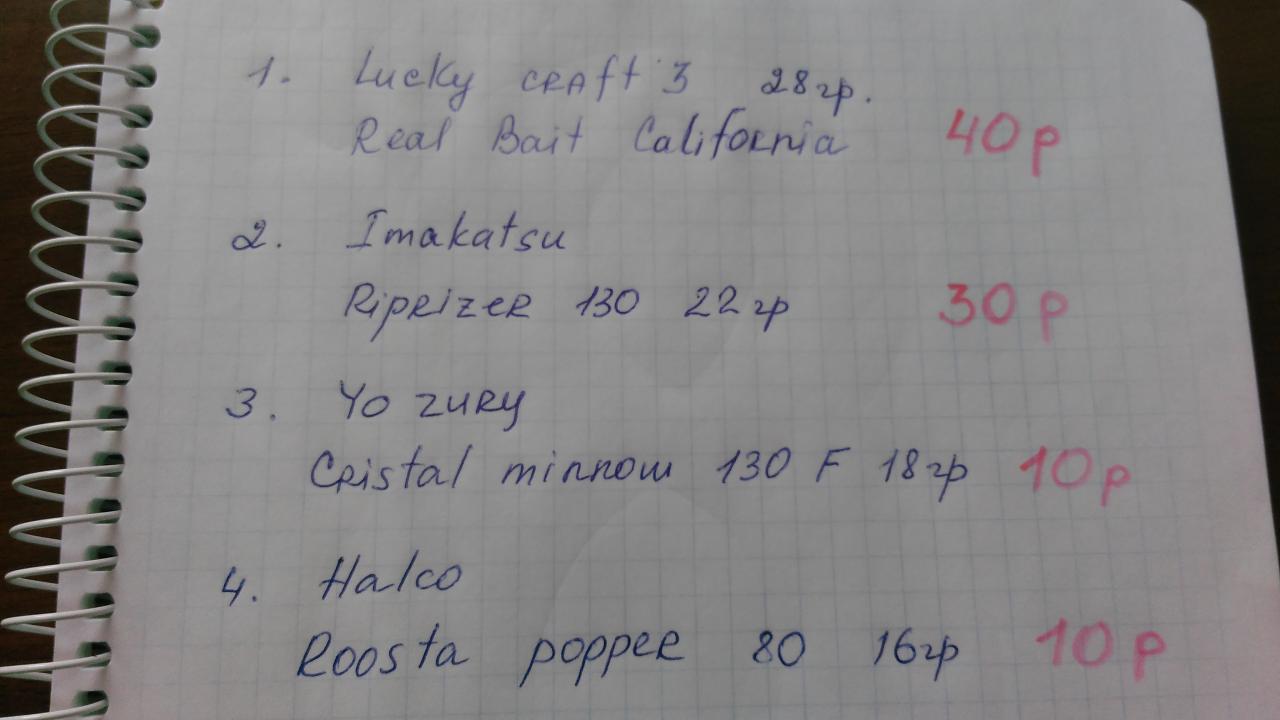 1. Lucky craft 3 28гр.
Real Bait California 40р
2. Imakatsu
Riprizer 130 22гр 30р
3. Yo zury
Cristal minnow 130 F 18гр 10р
4. Halco
Roosta popper 80 16гр 10р